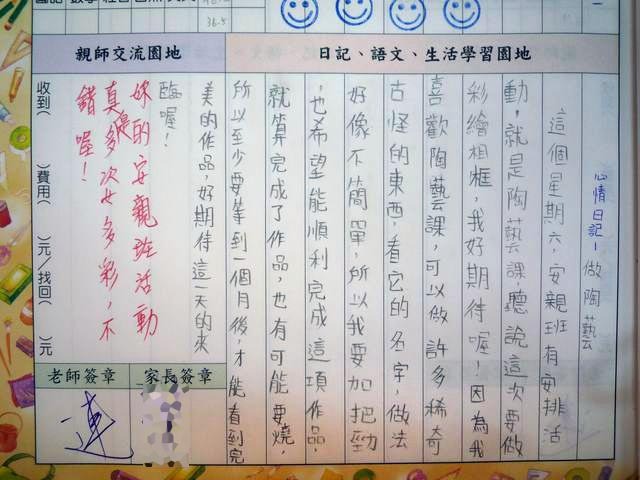 36.5
親師交流園地
日記、語文、生活學習園地
心情日記－做陶藝
這個星期六，安親班有安排活
動，就是陶藝課，聽說這次要做
彩繪相框，我好期待喔！因為我
喜歡陶藝課，可以做許多稀奇
古怪的東西，看它的名字，做法
好像不簡單，所以我要加把勁
，也希望能順利完成這項作品，
就算完成了作品，也有可能要燒，
所以至少要等到一個月後，才能看到完
美的作品，好期待這一天的來
臨喔！
妳的安親班活動
真是多姿多彩，不
錯喔！
收到（　）費用（　）元/找回（　）元
老師簽章
家長簽章
連